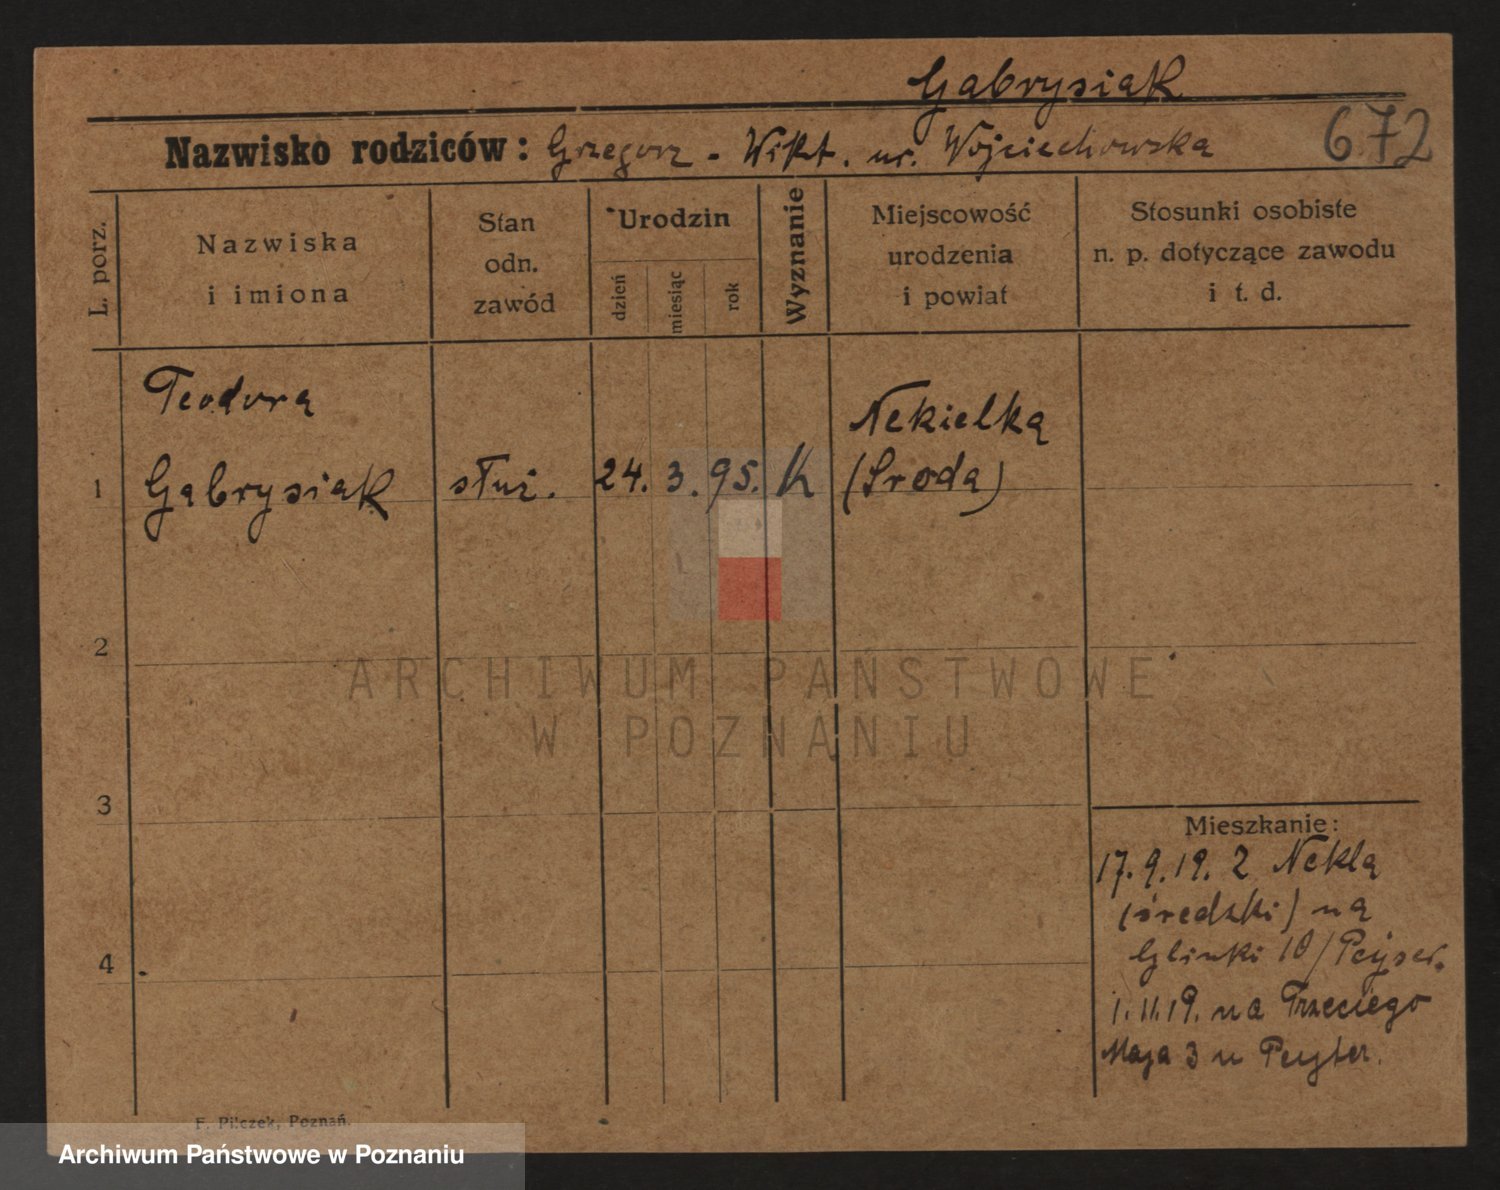 Gabrysiak
Nazwisko rodziców: Grzegorz - Wikt. ur. Wojciechowska 672
L. porz.
Nazwiska
i imiona
Stan
odn.
zawód
Urodzin
dzień
miesiąc
rok
Wyznanie
Miejscowość
urodzenia
i powiat
Stosunki osobiste
n. p. dotyczące zawodu
i t. d.
Teodora
Nekielka
1 Gabrysiak służ. 24. 3. 95. K (Sroda)
2
ARCHIWUM PAŃSTWOWE
W POZNANIU
3
Mieszkanie:
17.9.19. z Nekla
(średzki) na
4
Glinki 10/
1.11.19. na Trzeciego
Maja 3 u
F. Pilczek, Poznań.
Archiwum Państwowe w Poznaniu